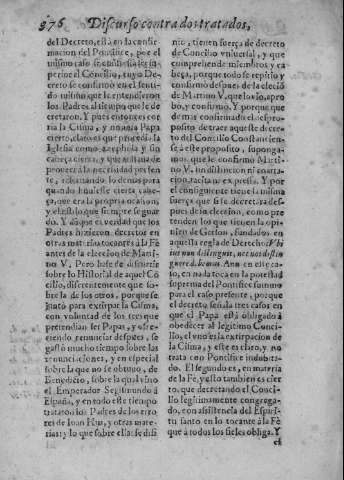 376 Discurso contra dos tratados,
del Decreto, està en la confir-
macion del Pontifice, por el
mismo caso se
perior el Concilio, cuyo De-
creto se confirmò en el senti-
do mismo que le entendieron
los Padres al tiempo que le de-
cretaron. Y pues entonces cor-
ria la Cisma, y no auia Papa
cierto, claro es que procediò la
Iglesia como azephola y sin
cabeça cierta, y que miraua de
proueer à la necesidad presen-
te, y dexando lo demas para
quando huuiesse cierta cabe-
ça, que era la propria ocasion,
y el estilo que siempre se guar-
dò. Y dàdo que es verdad que los
Padres hizieron decretos en
otras materias tocantes à la Fè
antes de la eleccion de Marti-
no V. Pero esso se discurre
sobre lo Historial de aquel Cō-
cilio, diferentemente que so-
bre la de los otros, porque se
juntò para extirpar la Cisma,
con voluntad de los tres que
pretendian ser Papas, y ofre-
ciendo renunciar despues, se
gastò mucho tiempo sobre las
renunciaciones, y en especial
sobre la que no se obtuuo, de
Benedicto, sobre la qual vino
el Emperador Segismundo à
España, y en todo este tiempo
trataron los Padres de los erro-
res de Ioan Hus, y otras mate-
rias: y lo que sobre ellas se difi
nio, tienen fuerça de decreto
de Concilio vniuersal, y que
comprehende miembros y ca-
beça, porque todo se repitiò y
confirmò despues de la elecciō
de Martino V. que lo loò, apro
bò, y confirmò. Y porque que
de mas confirmada el aspro-
posito de traer aqueste decre-
to del Concilio Constantiense
à este proposito, suponga-
mos, que le confirmò Marti-
no V. sin distincion ni contra-
ria expressa. Y por
el consiguiente tiene la misma
fuerça que si se decretara des-
pues de su eleccion, como pre
tenden los que tienen la opi-
nion de Gerson, fundados en
aquella regla de Derecho: Vbi
ius non distinguit, nec nos distin
guere debemus. Aun en este ca-
so, en nada toca en la potestad
suprema del Pontifice summo
para el caso presente, porque
el decreto señala tres casos en
que el Papa està obligado à
obedecer al legitimo Conci-
lio, el vno es la extirpacion de
la Cisma, y este es claro, y no
trata con Pontifice indubita-
do. El segundo es, en materia
de la Fè, y esto tambien es cier
to, que decretando el Conci-
lio legitimamente congrega-
do, con assistencia del Espiri-
tu santo en lo tocante à la Fè
que à todos los fieles obliga. Y